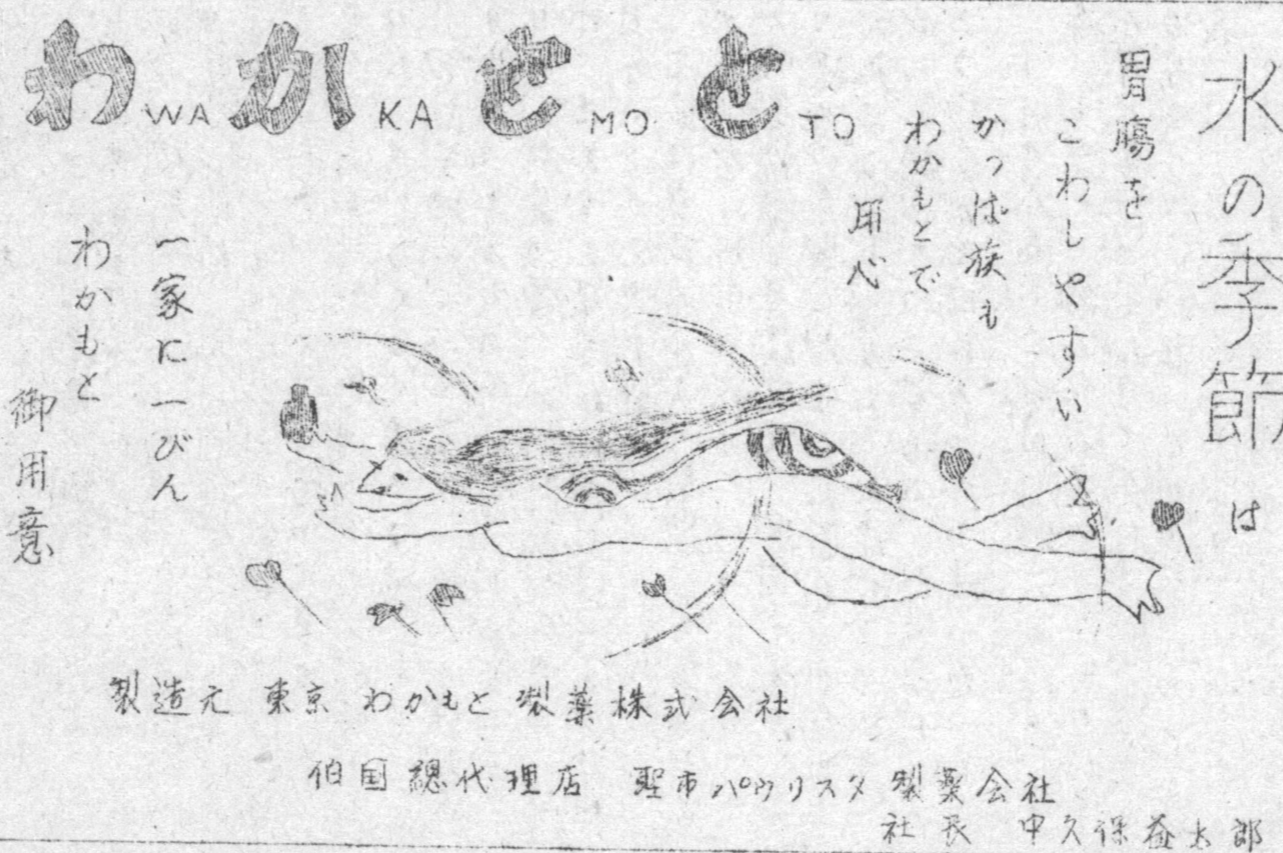 わ WA か KA も MO と TO
水の季節は
胃腸を
こわしやすい
かっぱ族も
わかもとで
用心
一家に一びん
わかもと
御用意
製造元 東京 わかもと製薬株式会社
伯国總代理店 聖市パウリスタ製薬会社
社長 中久保益太郎